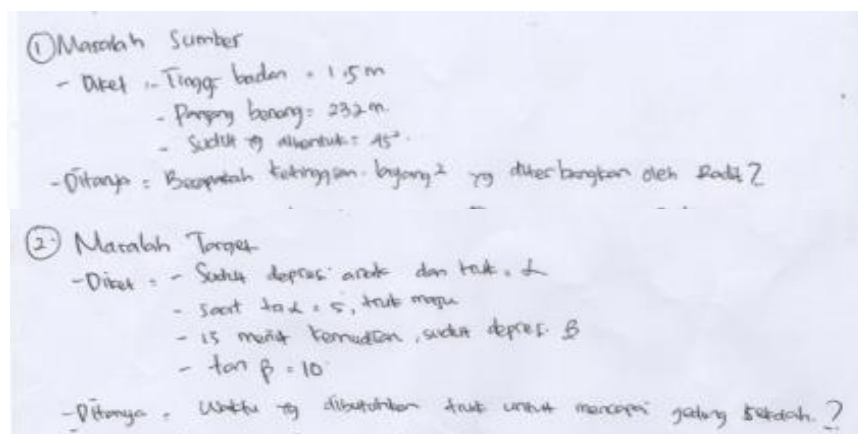 ① Masalah Sumber
- Diket :- Tinggi badan = 1.5 m
- Panjang benang = 232 m
- Sudut yg dibentuk = 45°.
- Ditanya = Berapakah ketinggian layang² yg diterbangkan oleh Radit?
② Masalah Target
- Diket = - Sudut depresi anak dan truk = α
- saat tan α = 5, truk maju
- 15 menit kemudian, sudut depresi β
- tan β = 10
- Ditanya = Waktu yg dibutuhkan truk untuk mencapai gedung sekolah ?